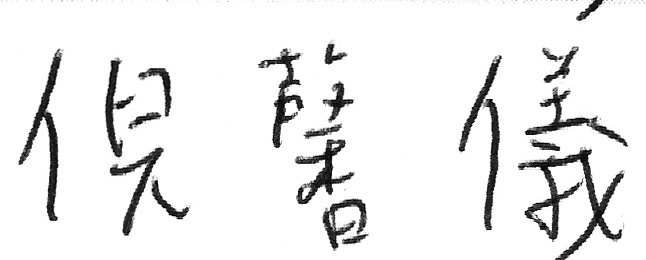 倪馨儀